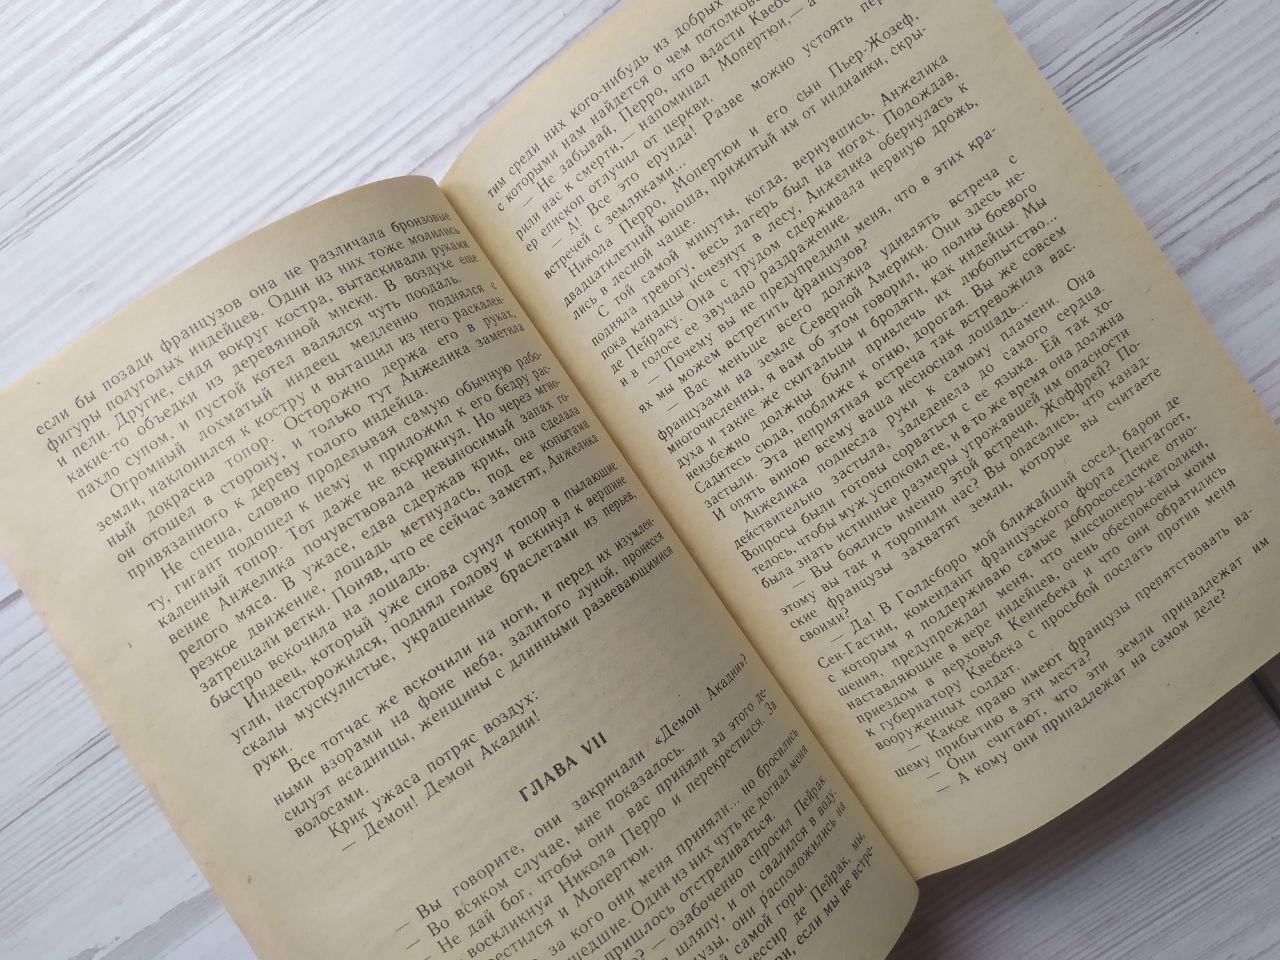 если бы позади французов она не различала бронзовые
фигуры полуголых индейцев. Одни из них тоже молились
и пели. Другие, сидя вокруг костра, вытаскивали руками
какие-то объедки из деревянной миски. В воздухе еще
пахло супом, и пустой котел валялся чуть поодаль.
Огромный лохматый индеец медленно поднялся с
земли, наклонился к костру и вытащил из него раскален-
ный докрасна топор. Осторожно держа его в руках,
он отошел в сторону, и только тут Анжелика заметила
привязанного к дереву голого индейца.
Не спеша, словно проделывая самую обычную рабо-
ту, гигант подошел к нему и приложил к его бедру рас-
каленный топор. Тот даже не вскрикнул. Но через мгно-
вение Анжелика почувствовала невыносимый запах го-
релого мяса. В ужасе, едва сдержав крик, она сделала
резкое движение, лошадь метнулась, под ее копытами
затрещали ветки. Поняв, что ее сейчас заметят, Анжелика
быстро вскочила на лошадь.
Индеец, который уже снова сунул топор в пылающие
угли, насторожился, поднял голову и вскинул к вершине
скалы мускулистые, украшенные браслетами из перьев,
руки.
Все тотчас же вскочили на ноги, и перед их изумлен-
ными взорами на фоне неба, залитого луной, пронесся
силуэт всадницы, женщины с длинными развевающимися
волосами.
Крик ужаса потряс воздух:
— Демон! Демон Акадии!
ГЛАВА VII
— Вы говорите, они закричали «Демон Акадии»?
— Во всяком случае, мне показалось.
— Не дай бог, чтобы они вас приняли за этого де-
воскликнул Никола Перро и перекрестился. За
рестился и Мопертюи.
за кого они меня приняли... но бросились
шедшие. Один из них чуть не догнал меня
пришлось отстреливаться.
— озабоченно спросил Пейрак.
шляпу, и он свалился в воду.
узы, они расположились на
самой горы.
мессир де Пейрак, мы,
если мы не встре-
тим среди них кого-нибудь из добрых
с которыми нам найдется о чем потолков
— Не забывай, Перро, что власти Квебе
рили нас к смерти, — напоминал Мопертюи, — а
ер епископ отлучил от церкви.
— А! Все это ерунда! Разве можно устоять пер
встречей с земляками...
Никола Перро, Мопертюи и его сын Пьер-Жозеф,
двадцатилетний юноша, прижитый им от индианки, скры-
лись в лесной чаще.
С той самой минуты, когда, вернувшись, Анжелика
подняла тревогу, весь лагерь был на ногах. Подождав,
пока канадцы исчезнут в лесу, Анжелика обернулась к
де Пейраку. Она с трудом сдерживала нервную дрожь,
и в голосе ее звучало раздражение.
— Почему вы не предупредили меня, что в этих кра-
ях мы можем встретить французов?
— Вас меньше всего должна удивлять встреча с
французами на земле Северной Америки. Они здесь не-
многочисленны, я вам об этом говорил, но полны боевого
духа и такие же скитальцы и бродяги, как индейцы. Мы
неизбежно должны были привлечь их любопытство...
Садитесь сюда, поближе к огню, дорогая. Вы же совсем
застыли. Эта неприятная встреча так встревожила вас.
И опять виною всему ваша несносная лошадь...
Анжелика поднесла руки к самому пламени. Она
действительно застыла, заледенела до самого сердца.
Вопросы были готовы сорваться с ее языка. Ей так хо-
телось, чтобы муж успокоил ее, и в то же время она должна
была знать истинные размеры угрожавшей им опасности
— Вы боялись именно этой встречи, Жоффрей? По-
этому вы так и торопили нас? Вы опасались, что канад-
ские французы захватят земли, которые вы считаете
своими?
— Да! В Голдсборо мой ближайший сосед, барон де
Сен-Гастин, комендант французского форта Пентагоет,
с которым я поддерживаю самые добрососедские отно-
шения, предупреждал меня, что миссионеры-католики,
наставляющие в вере индейцев, очень обеспокоены моим
приездом в верховья Кеннебека и что они обратились
к губернатору Квебека с просьбой послать против меня
вооруженных солдат.
— Какое право имеют французы препятствовать на-
шему прибытию в эти места?
— Они считают, что эти земли принадлежат им
— А кому они принадлежат на самом деле?